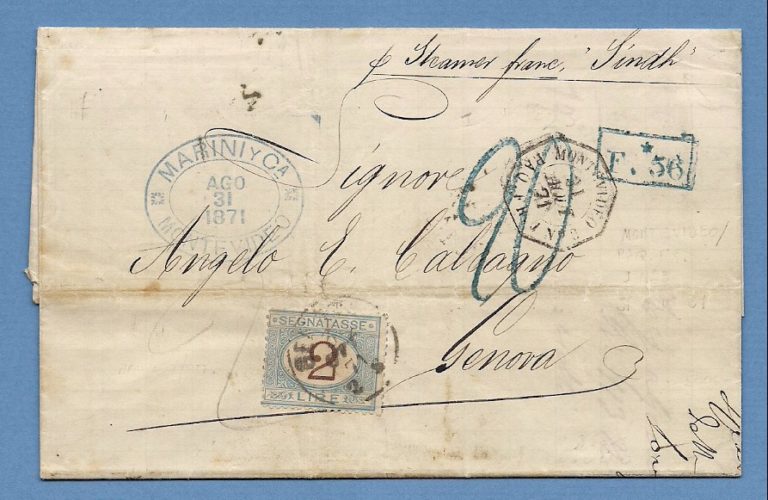 p Steamer franc. "Sindh"
MARINI Y CA
AGO
31
1871
MONTEVIDEO
F. 56
MONTEVIDEO
20
Signore
Angelo E. Calcagno
Genova
SEGNATASSE
2
LIRE